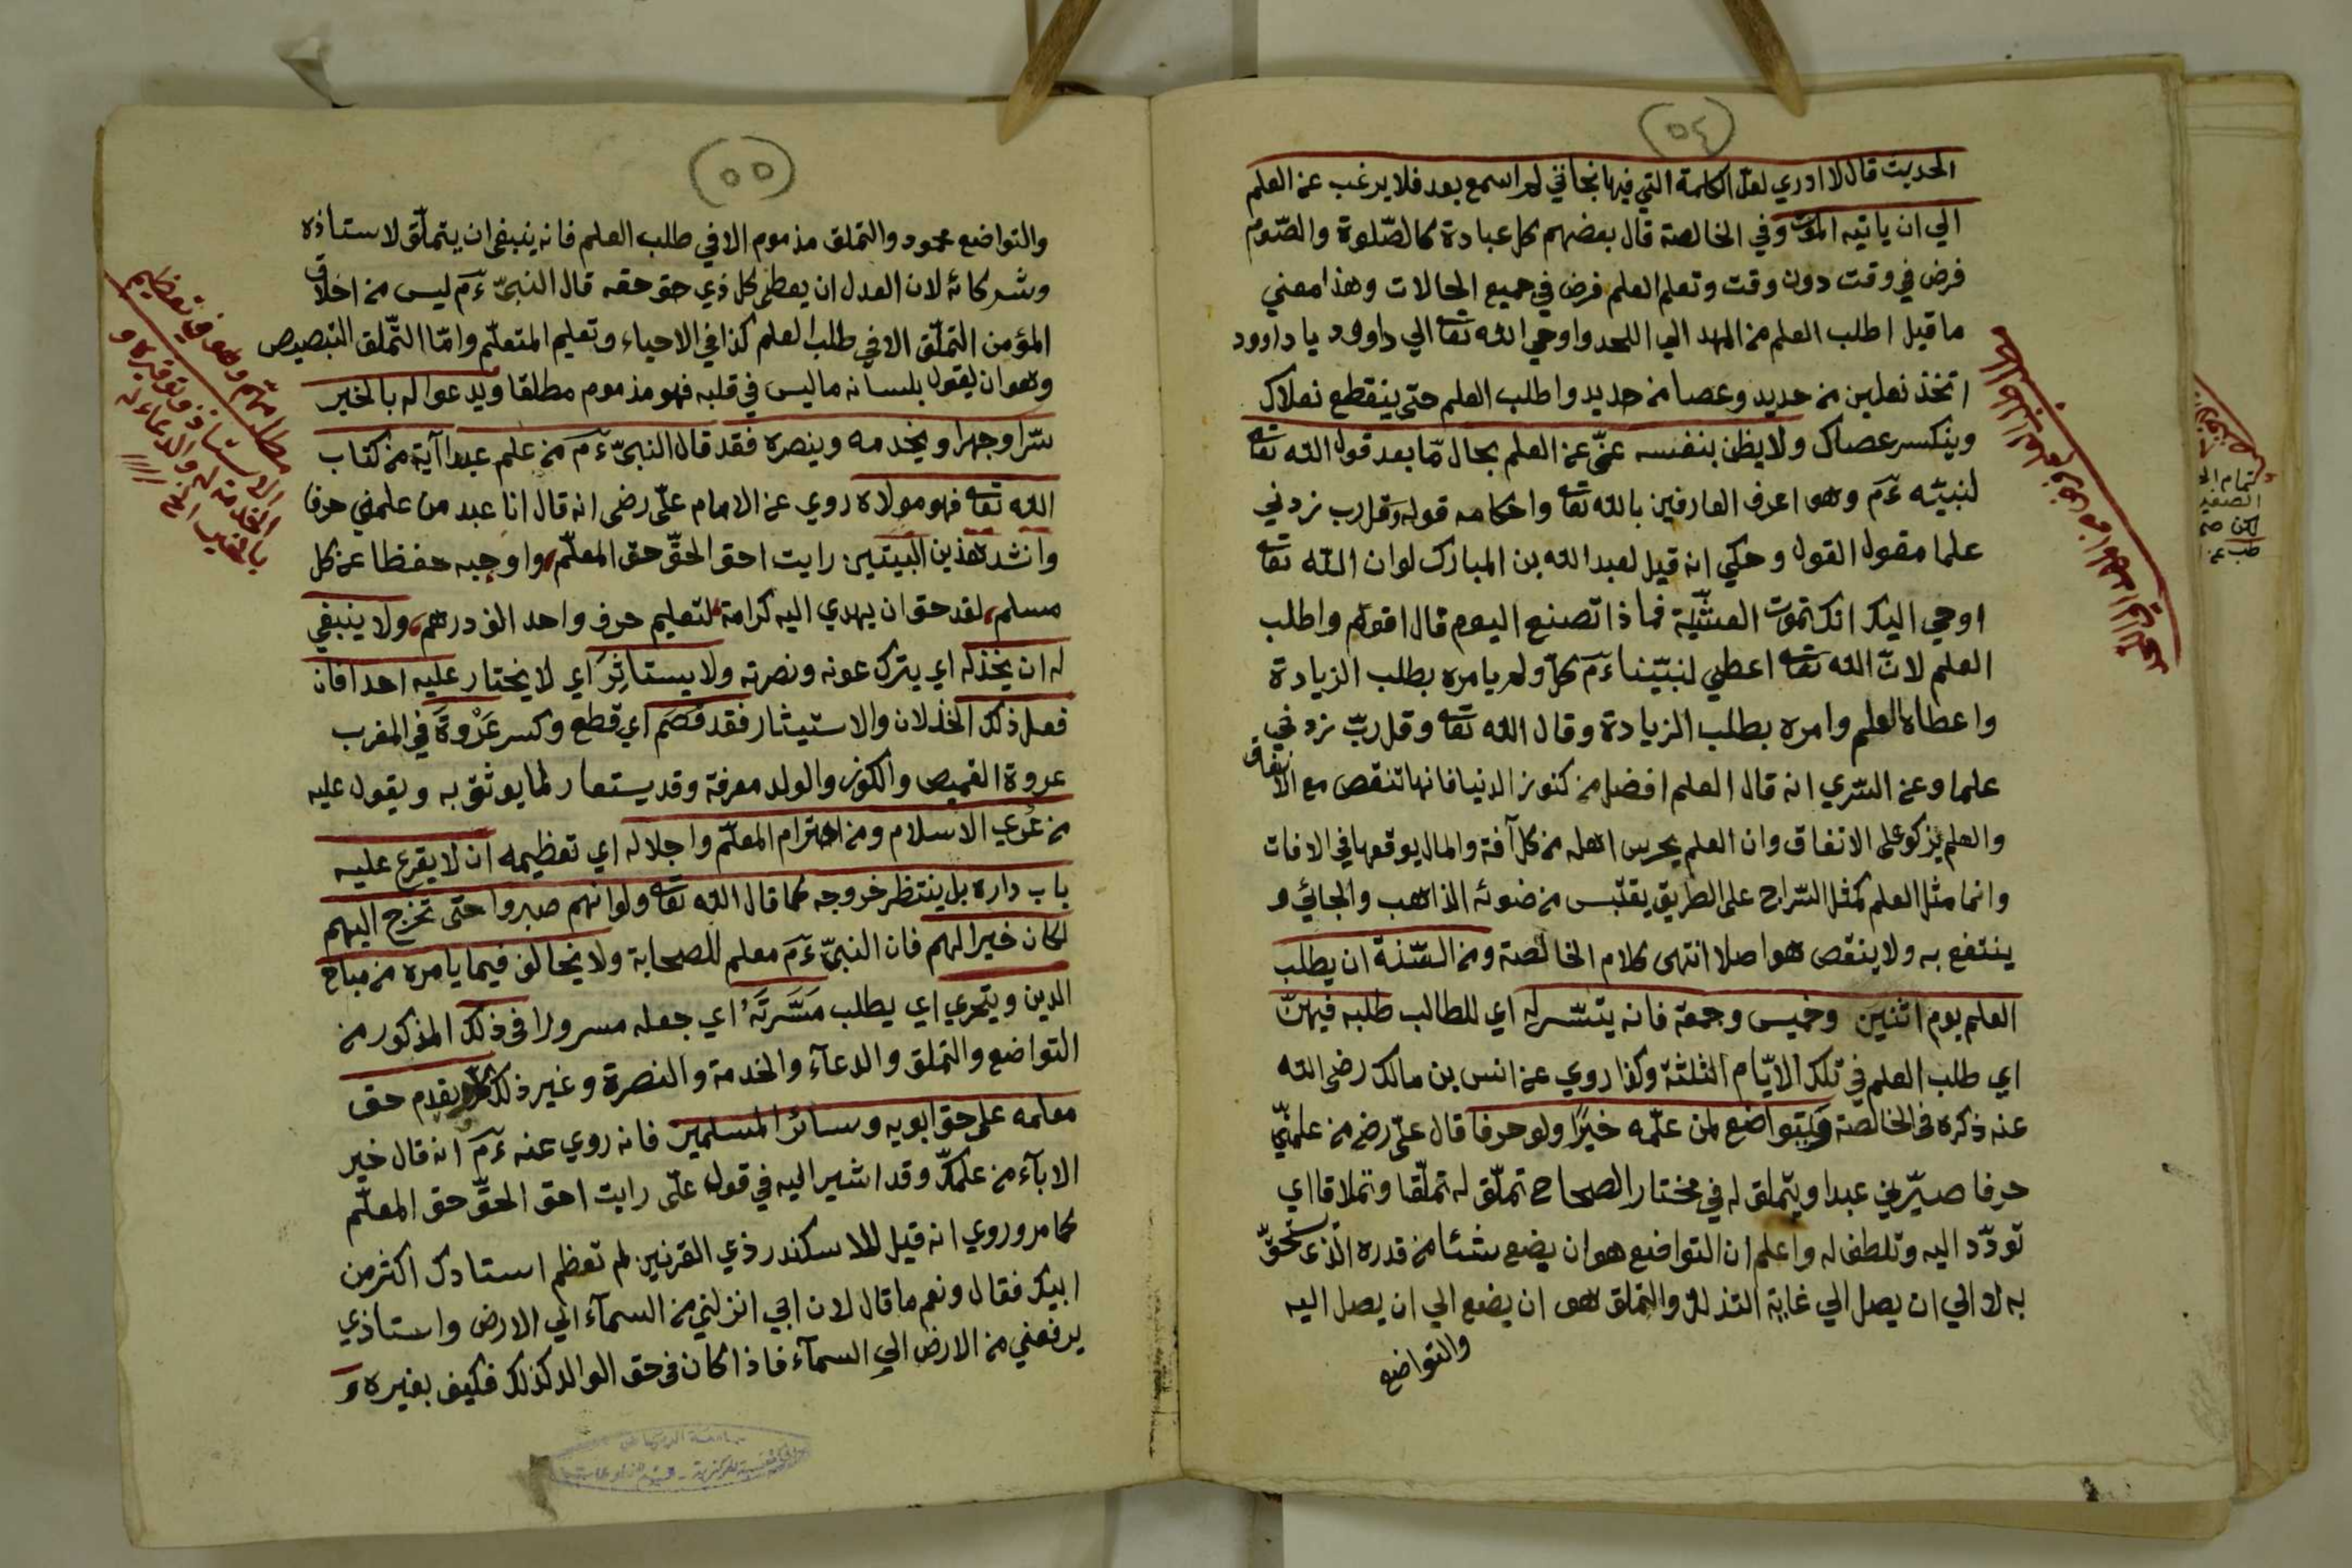 (٥٤)
الحديث قال لا ادري لعل الكلمة التي فيها نجاتي لم اسمع بعد فلا يرغب عن العلم
الي ان ياتيه الموت وفي الخالصة قال بعضهم كل عبادة كالصّلوة والصّوم
فرض في وقت دون وقت وتعلم العلم فرض في جميع الحالات وهذا معني
ما قيل اطلب العلم من المهد الي اللحد واوحي الله تعا الي داوود يا داوود
اتخذ نعلين من حديد وعصا من حديد واطلب العلم حتى ينقطع نعلاك
وينكسر عصاك ولا يظن بنفسه غنّى عن العلم بحال مّا بعد قول الله تعا
لنبيّه عم وهو اعرف العارفين بالله تعا واحكامه قوله وقل رب زدني
علما مقول القول وحكي انه قيل لعبد الله بن المبارك لو ان الله تعا
اوحي اليك انك تموت العشيّة فماذا تصنع اليوم قال اقوم واطلب
العلم لانّ الله تعا اعطي لنبيّنا عم كلّ ولم يامره بطلب الزيادة
واعطاه العلم وامره بطلب الزيادة وقال الله تعا وقل ربّ زدني
علما وعن السّري انه قال العلم افضل من كنوز الدنيا فانها تنقص مع الانفاق
والعلم يزكو على الانفاق وان العلم يحرس اهله من كل آفة والمال يوقعها في الافات
وانما مثل العلم كمثل السّراج على الطريق يقتبس من ضوئه الذاهب والجائي و
ينتفع به ولا ينقص هو اصلا انتهى كلام الخالصة ومن السّنة ان يطلب
العلم يوم اثنين وخميس وجمعة فانه يتسّر له اي للطالب طلبه فيهنّ
اي طلب العلم في تلك الايّام الثلثة وكذا روي عن انس بن مالك رضى الله
عنه ذكره في الخالصة ويتواضع لمن علّمه خيرًا ولو حرفا قال علىّ رض من علمنّي
حرفا صيّرني عبدا ويتملق له في مختار الصحاح تملّق له تملّقا وتملاقا اي
تودّد اليه وتلطف له واعلم ان التواضع هو ان يضع شئا من قدره الّذي يستحقّ
به لا الي ان يصل الي غاية التذلل والتملق هو ان يضع الي ان يصل اليه
والتواضع
(٥٥)
والتواضع محمود والتملق مذموم الا في طلب العلم فانه ينبغي ان يتملّق لاستاذه
وشركائه لان العدل ان يعطى كل ذي حق حقه قال النبىّ عم ليس من اخلاق
المؤمن التملّق الا في طلب العلم كذا في الاحياء وتعليم المتعلّم وامّا التّملق التبصيص
وهو ان يقول بلسانه ما ليس في قلبه فهو مذموم مطلقا ويدعو اله بالخير
سّرا وجهرا ويخدمه وينصره فقد قال النبىّ عم من علم عبدا آية من كتاب
الله تعا فهو مولاه روي عن الامام علىّ رضى انه قال انا عبد من علمني حرفا
وانشد هذين البيتين رايت احق الحقّ حق المعلّم، واوجبه حفظا عن كل
مسلم، لقد حق ان يهدي اليه كرامة، لتعليم حرف واحد الف درهم، ولا ينبغي
له ان يخذله اي يترك عونه ونصرته ولا يستاثِرَ اي لا يختار عليه احدا فان
فعل ذلك الخذلان والاستيثار فقد قصَم اي قطع وكسر عَرْوَةَ في المغرب
عروة القميص والكوز والولد معرفة وقد يستعار لما يوثق به ويقول عليه
من عُرى الاسلام ومن احترام المعلّم واجلاله اي تعظيمه ان لا يقرع عليه
باب داره بل ينتظر خروجه كما قال الله تعا ولو انهم صبروا حتى تخرج اليهم
لكان خيرا لهم فان النبىّ عم معلم للصحابة ولا يخالف فيما يامره من مباح
الدين ويتحري اي يطلب مَسَّرتَهُ اي جعله مسرورا في ذلك المذكور من
التواضع والتملق والدعآء والخدمة والنصرة وغير ذلك ويقدم حق
معلمه على حق ابويه وسائر المسلمين فانه روي عنه عم انه قال خير
الابآء من علمكّ وقد اشير اليه في قول علىّ رايت احق الحقّ حق المعلّم
كما مر وروي انه قيل للاسكندر ذي القرنين لم تعظم استادك اكثر من
ابيك فقال ونعم ما قال لان ابي انزلني من السمآء الي الارض واستاذي
يرفعني من الارض الي السمآء فاذا كان في حق الوالد كذلك فكيف بغيره و
مطلب مهّم وهو في تعظيم
الاستاذ وتوقيره و
الخدمة له والدعاء له
بالخير الخ